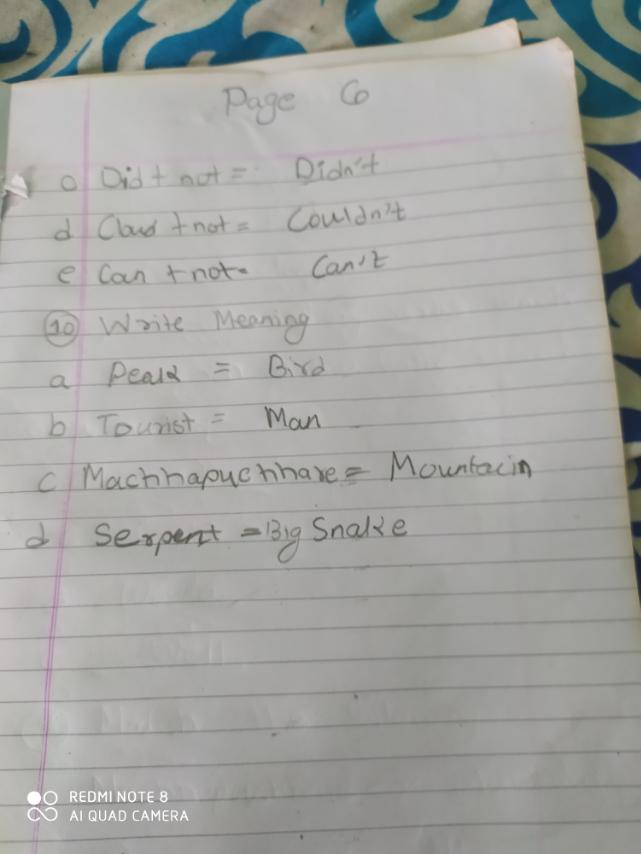 Page 6
c Did + not = Didn't
d Cloud + not = Couldn't
e Can + not = Can't
10 Write Meaning
a Peak = Bird
b Tourist = Man
c Machhapuchhare = Mountacin
d Serpent = Big Snake
REDMI NOTE 8
AI QUAD CAMERA